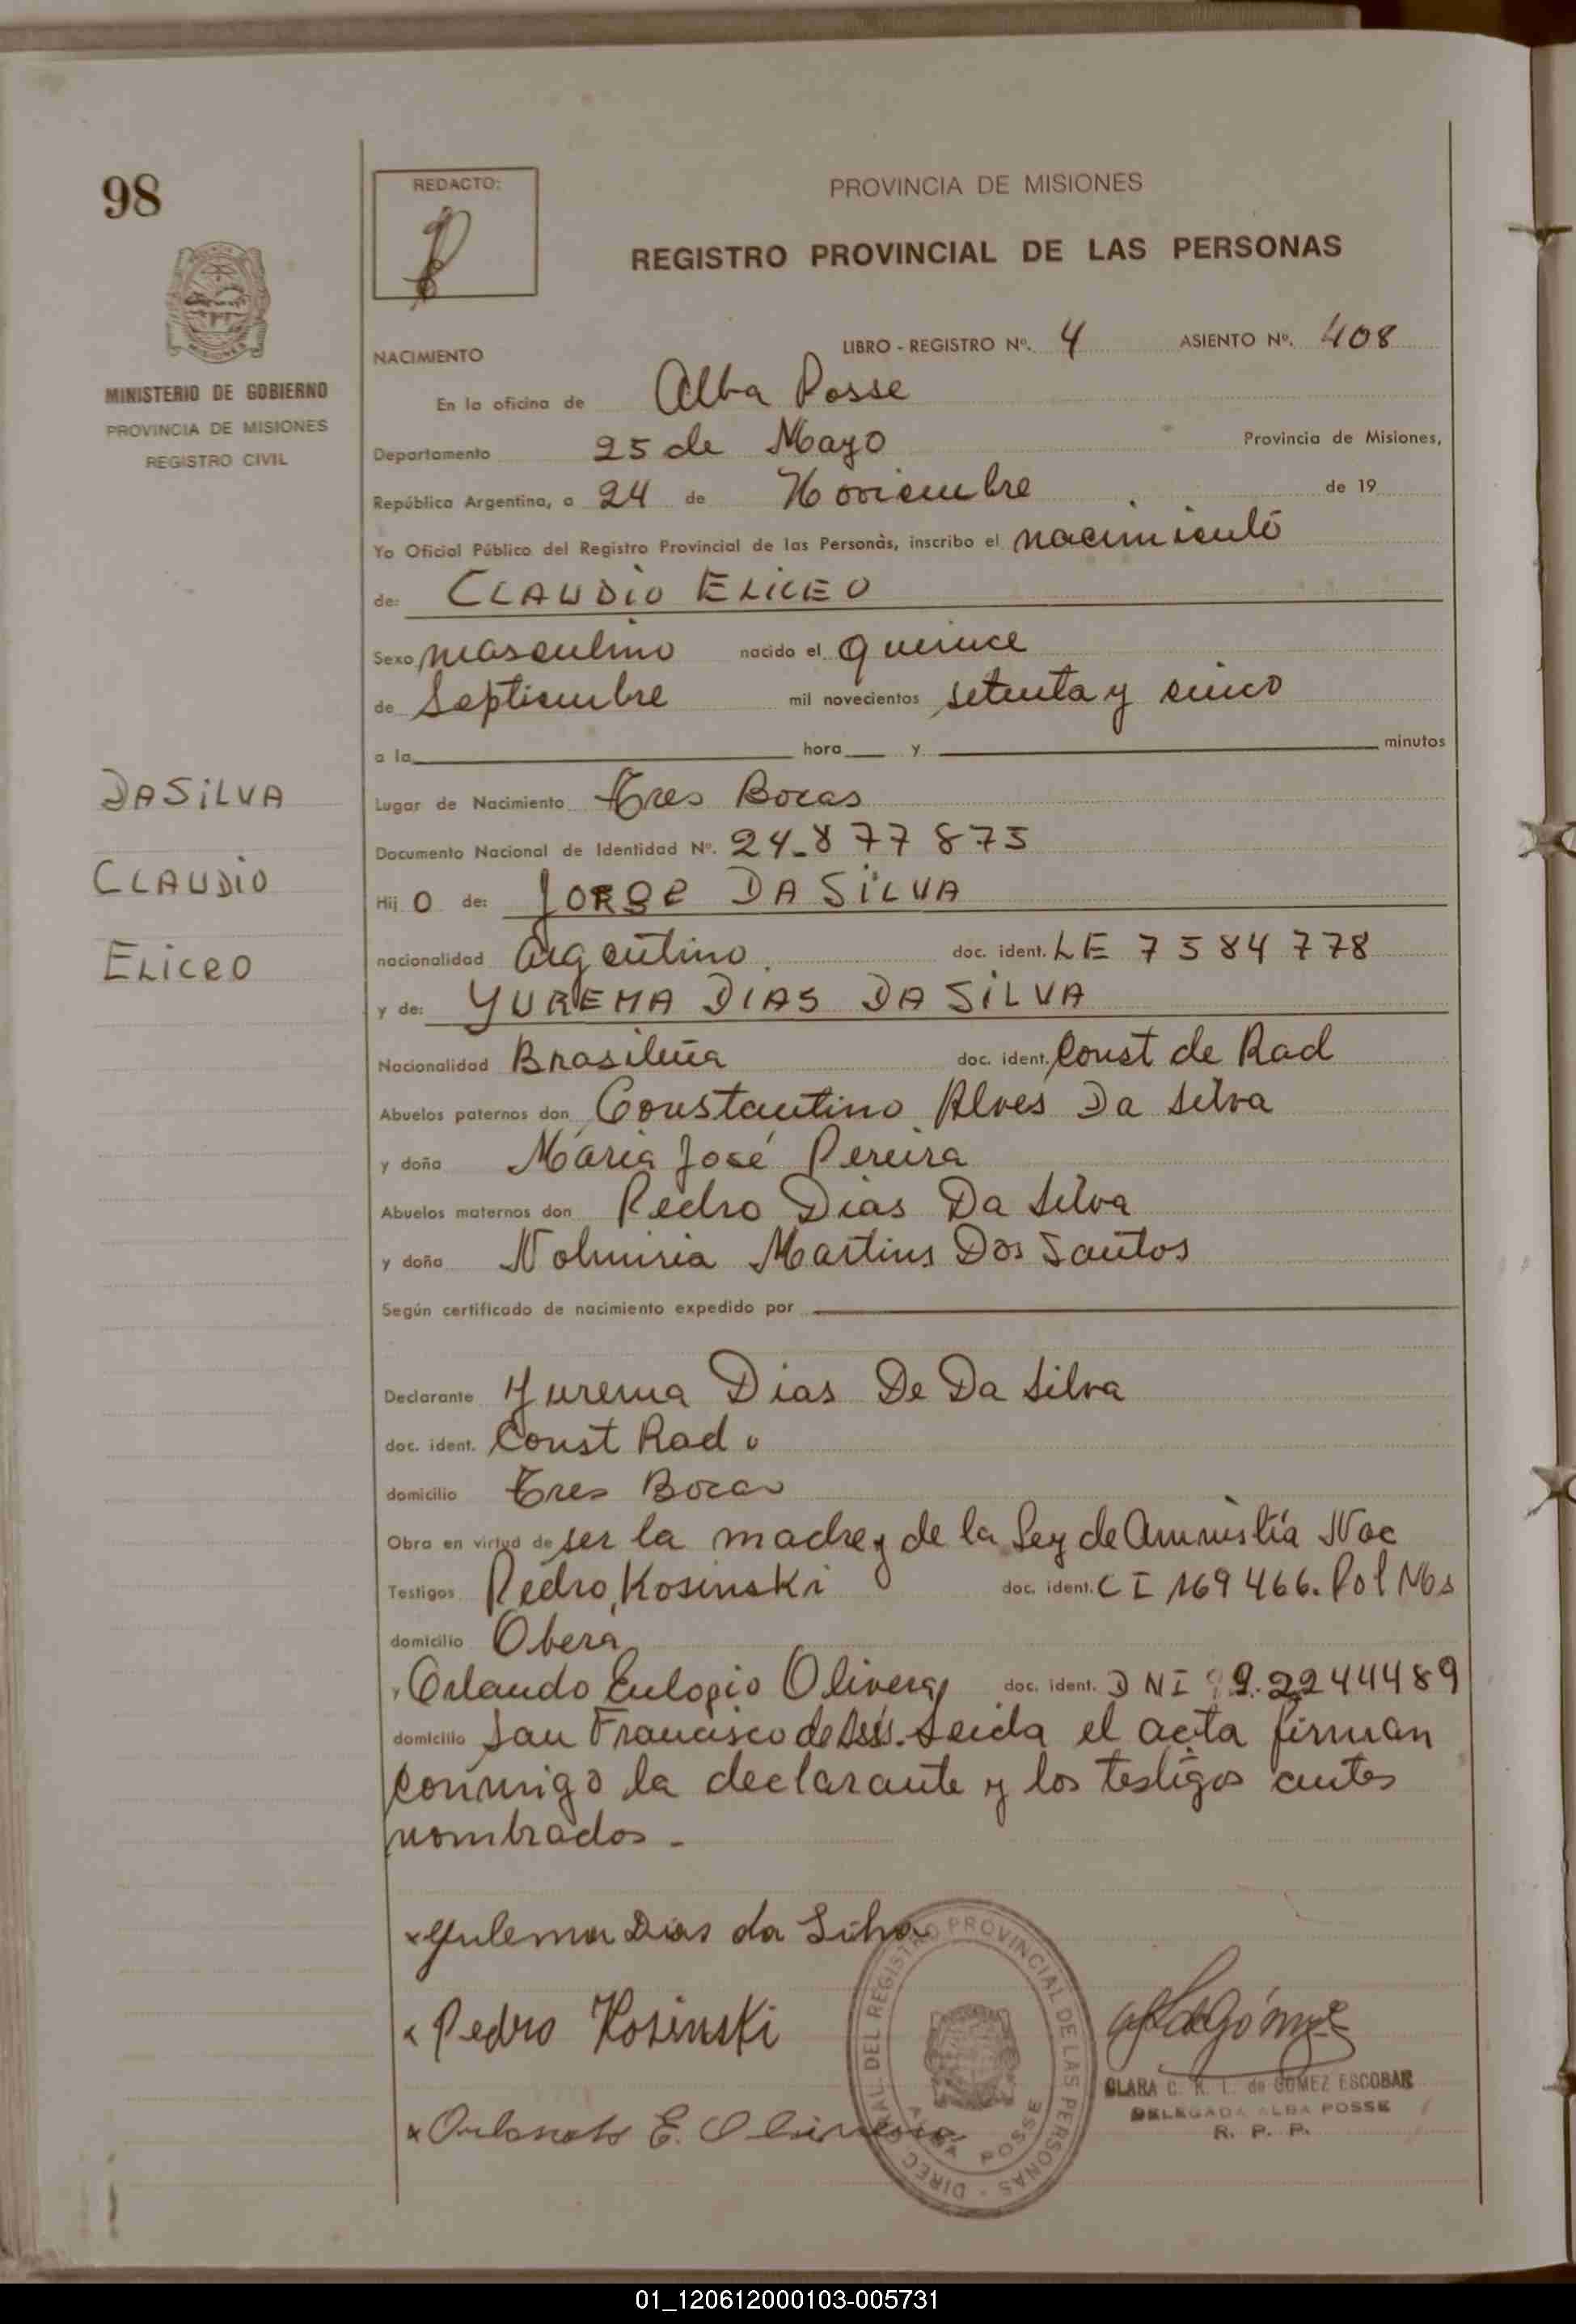 98
REDACTO:
PROVINCIA DE MISIONES
REGISTRO PROVINCIAL DE LAS PERSONAS
MINISTERIO DE GOBIERNO
PROVINCIA DE MISIONES
REGISTRO CIVIL
NACIMIENTO LIBRO - REGISTRO Nº. 4 ASIENTO Nº. 408
En la oficina de Alba Posse
Departamento 25 de Mayo Provincia de Misiones,
República Argentina, a 24 de Noviembre de 19
Yo Oficial Público del Registro Provincial de las Personas, inscribo el nacimiento
de: CLAUDIO ELICEO
Sexo masculino nacido el quince
de Septiembre mil novecientos setenta y cinco
a la hora y minutos
DA SILVA
CLAUDIO
ELICEO
Lugar de Nacimiento Tres Bocas
Documento Nacional de Identidad Nº. 24-877875
Hij o de: JORGE DA SILVA
nacionalidad argentino doc. ident. LE 7584778
y de: YUREMA DIAS DA SILVA
Nacionalidad Brasileña doc. ident. Const de Rad
Abuelos paternos don Constantino Alves Da Silva
y doña Maria José Pereira
Abuelos maternos don Pedro Dias Da Silva
y doña Martins Dos Santos
Según certificado de nacimiento expedido por
Declarante Yurema Dias De Da Silva
doc. ident. Const Rad
domicilio Tres Bocas
Obra en virtud de ser la madre y de la Ley de Amnistía Nac
Testigos Pedro Kosinski doc. ident. CI 169466. Pol Mns
domicilio Obera
y Orlando Eulogio Olivera doc. ident. DNI 9.2244489
domicilio San Francisco de Asís. Leida el acta firman
conmigo la declarante y los testigos antes
nombrados -
x Yulema Dias da Silva
x Pedro Kosinski
x Orlando E. Olivera
DIREC. GRAL. DEL REGISTRO PROVINCIAL DE LAS PERSONAS -
ALBA POSSE
CLARA C. R. I. de GOMEZ ESCOBAR
DELEGADA ALBA POSSE
R. P. P.
01_120612000103-005731